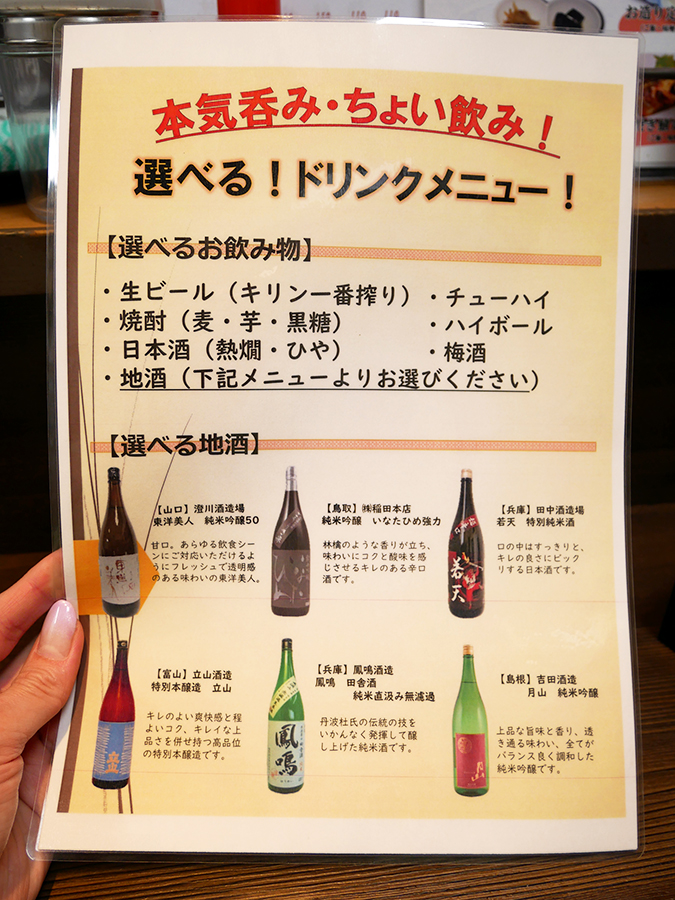 本気呑み・ちょい飲み！
選べる！ドリンクメニュー！
【選べるお飲み物】
・生ビール（キリン一番搾り）
・焼酎（麦・芋・黒糖）
・日本酒（熱燗・ひや）
・地酒（下記メニューよりお選びください）
・チューハイ
・ハイボール
・梅酒
【選べる地酒】
【山口】澄川酒造場
東洋美人　純米吟醸50
甘口。あらゆる飲食シー
ンにご対応いただけるよ
うにフレッシュで透明感
のある味わいの東洋美人。
【鳥取】㈱稲田本店
純米吟醸　いなたひめ強力
林檎のような香りが立ち、
味わいにコクと酸味を感
じさせるキレのある辛口
酒です。
【兵庫】田中酒造場
若天　特別純米酒
口の中はすっきりと、
キレの良さにビック
リする日本酒です。
若天
【富山】立山酒造
特別本醸造　立山
キレのよい爽快感と程
よいコク、キレイな上
品さを併せ持つ高品位
の特別本醸造です。
立山
【兵庫】鳳鳴酒造
鳳鳴　田舎酒
純米直汲み無濾過
丹波杜氏の伝統の技を
いかんなく発揮して醸
し上げた純米酒です。
鳳鳴
【島根】吉田酒造
月山　純米吟醸
上品な旨味と香り、透
き通る味わい、全てが
バランス良く調和した
純米吟醸です。
月山